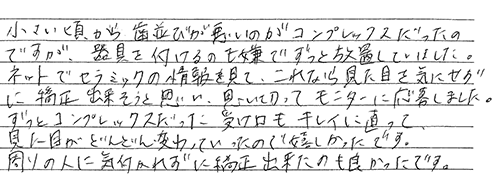 小さい頃から歯並びが悪いのがコンプレックスだったの
ですが、器具を付けるのも嫌でずっと放置していました。
ネットでセラミックの情報を見て、これなら見た目を気にせず
に矯正出来そうと思い、思い切ってモニターに応募しました。
ずっとコンプレックスだった受け口もキレイに直って、
見た目がどんどん変わっていったので嬉しかったです。
周りの人に気付かれずに矯正出来たのも良かったです。